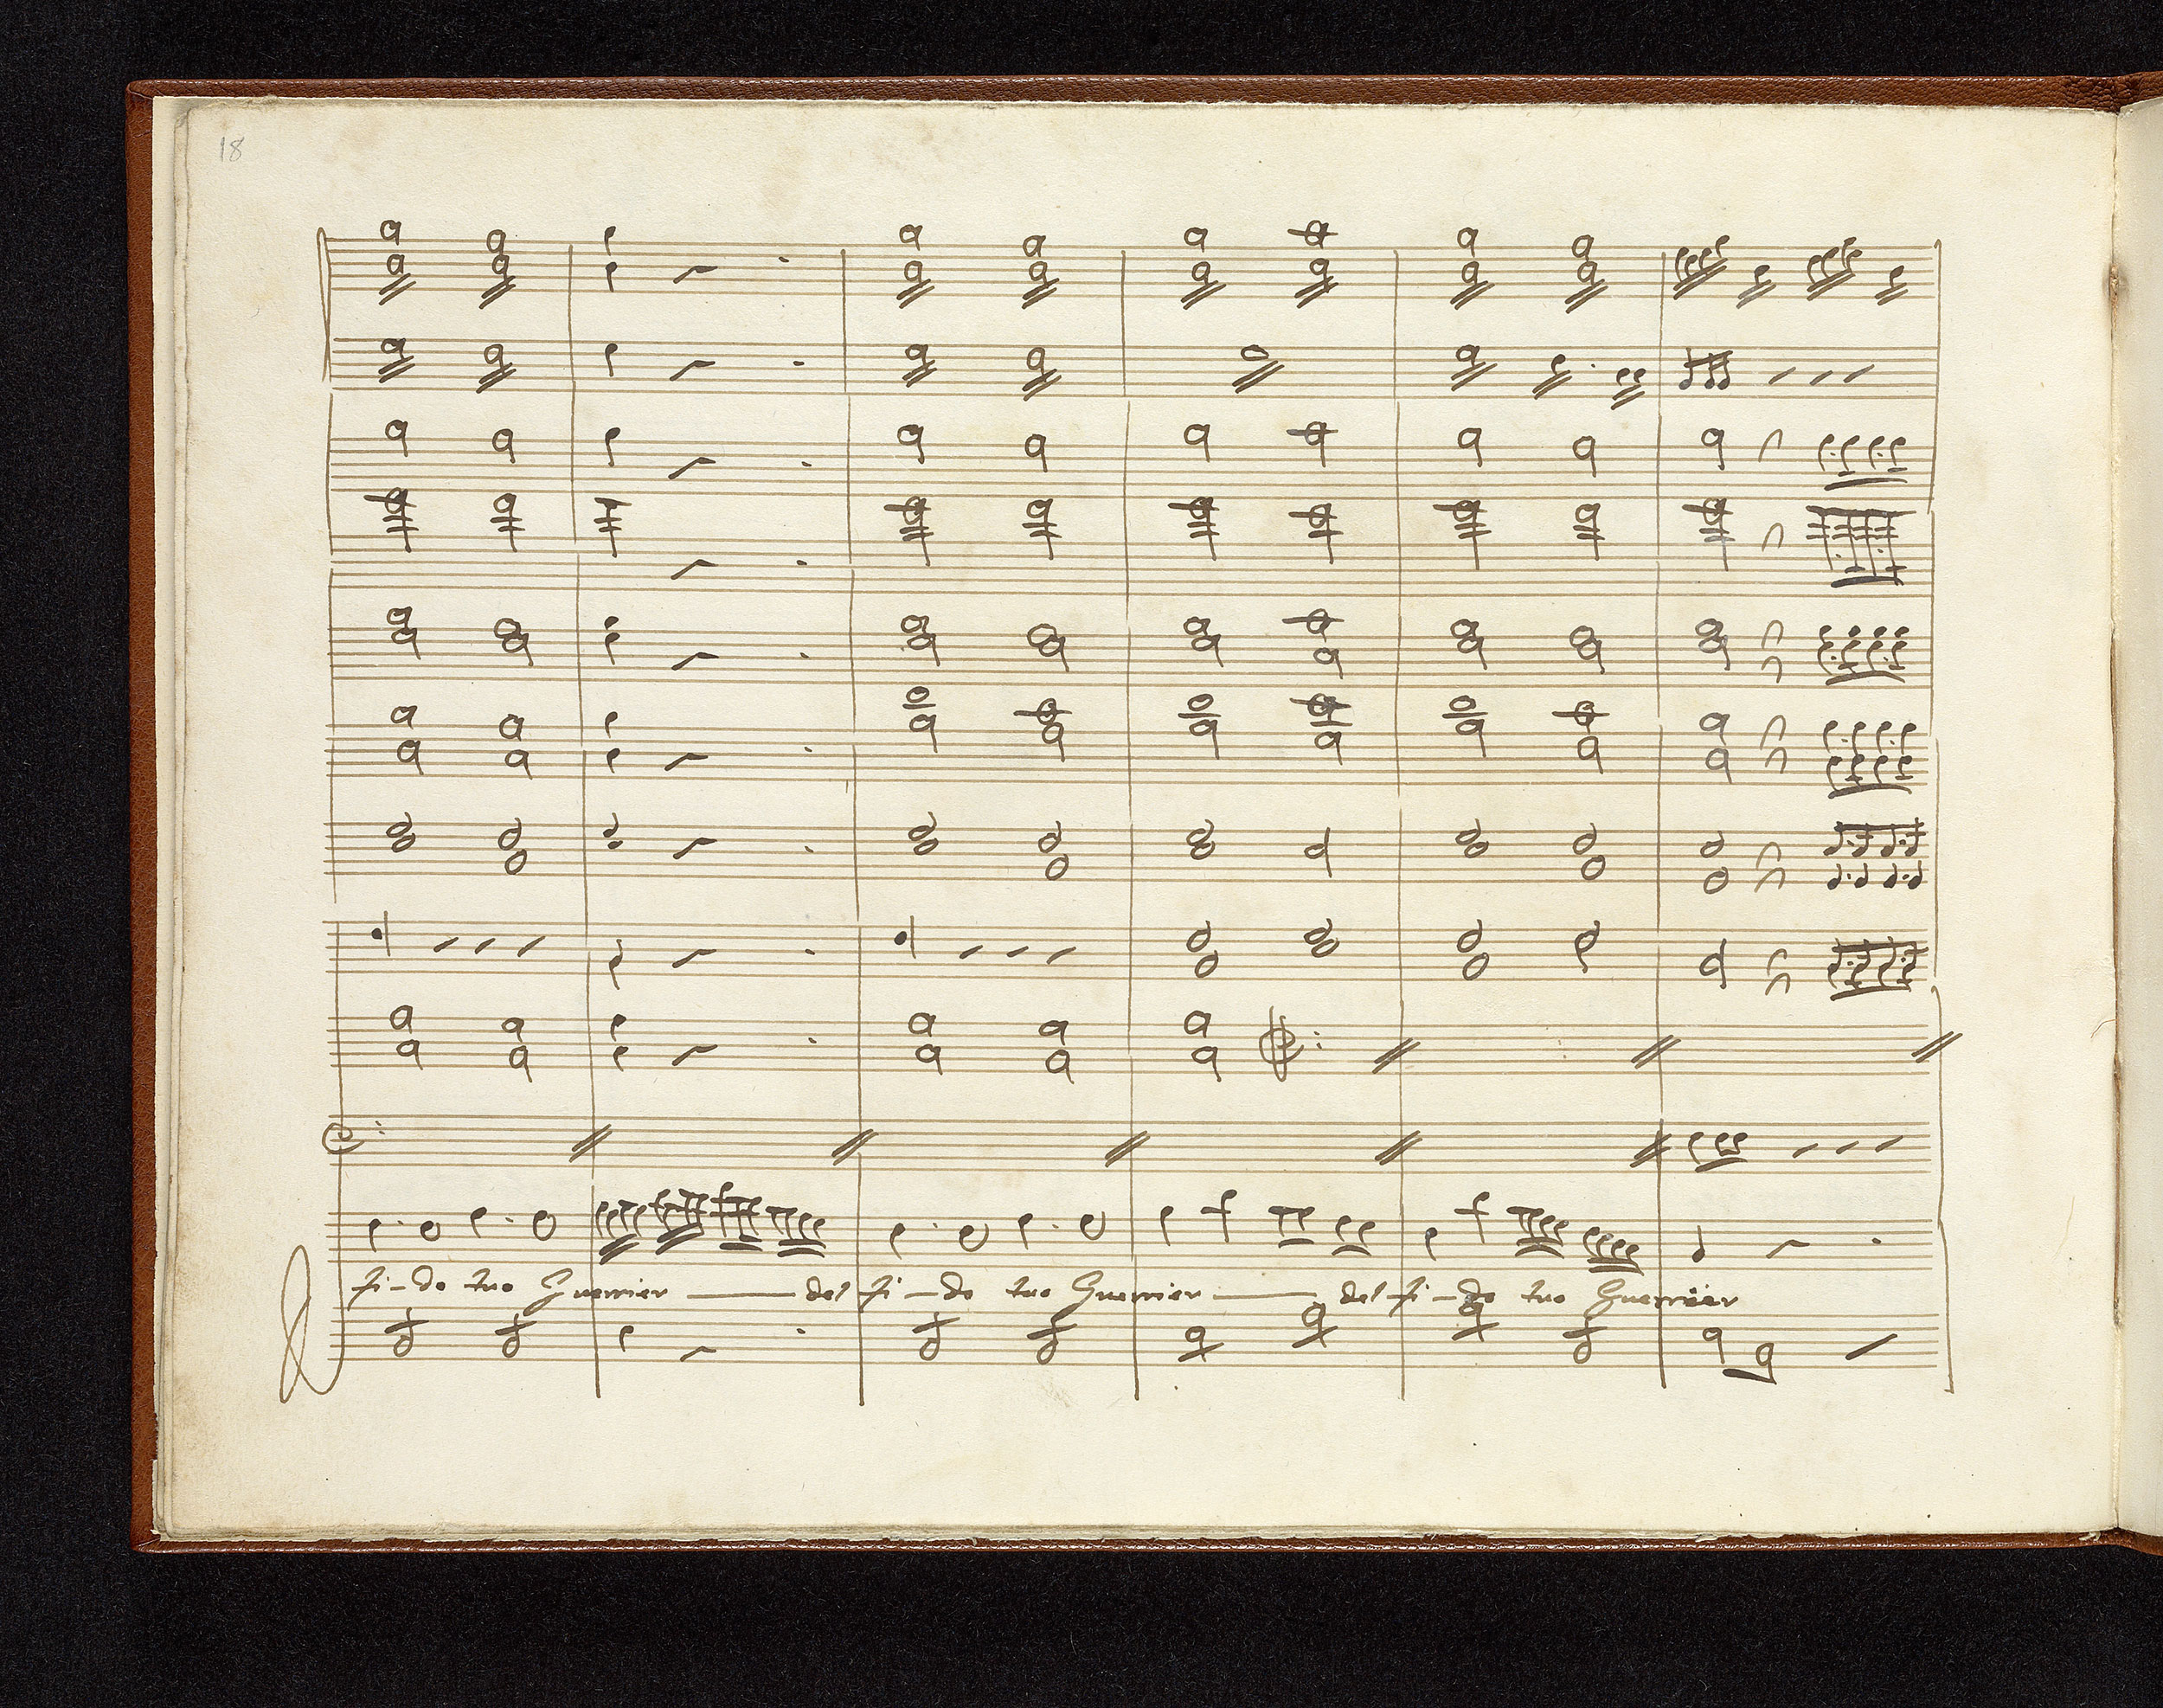 18
fi-do tuo Guerrier — del fi-do tuo Guerrier — del fi-do tuo Guerrier